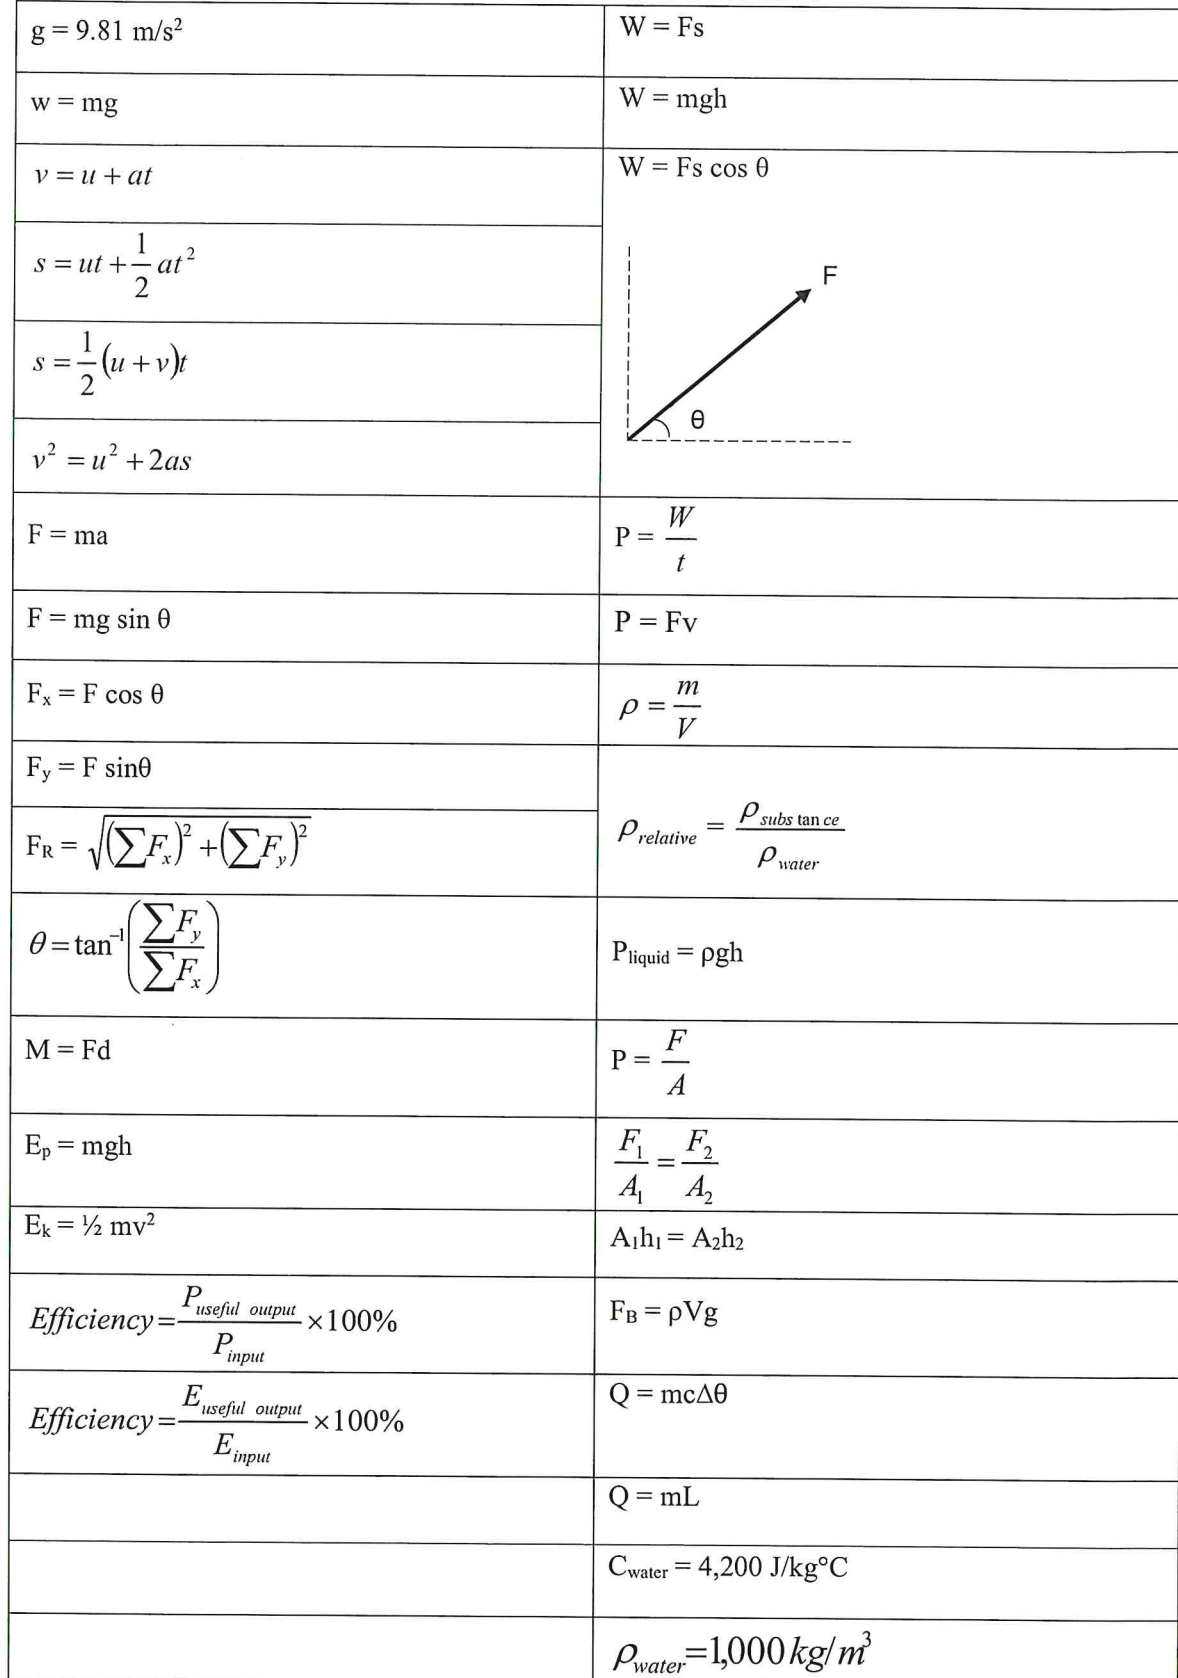 g = 9.81 m/s²
w = mg
v = u + at
s = ut + 1/2 at²
s = 1/2 (u + v)t
v² = u² + 2as
F = ma
F = mg sin θ
Fₓ = F cos θ
F_y = F sinθ
F_R = √((∑F_x)² + (∑F_y)²)
θ = tan⁻¹(∑F_y / ∑F_x)
M = Fd
E_p = mgh
E_k = ½ mv²
Efficiency = P_useful output / P_input × 100%
Efficiency = E_useful output / E_input × 100%
W = Fs
W = mgh
W = Fs cos θ
F
θ
P = W / t
P = Fv
ρ = m / V
ρ_relative = ρ_subs tan ce / ρ_water
P_liquid = ρgh
P = F / A
F₁ / A₁ = F₂ / A₂
A₁h₁ = A₂h₂
F_B = ρVg
Q = mcΔθ
Q = mL
C_water = 4,200 J/kg°C
ρ_water = 1,000 kg/m³